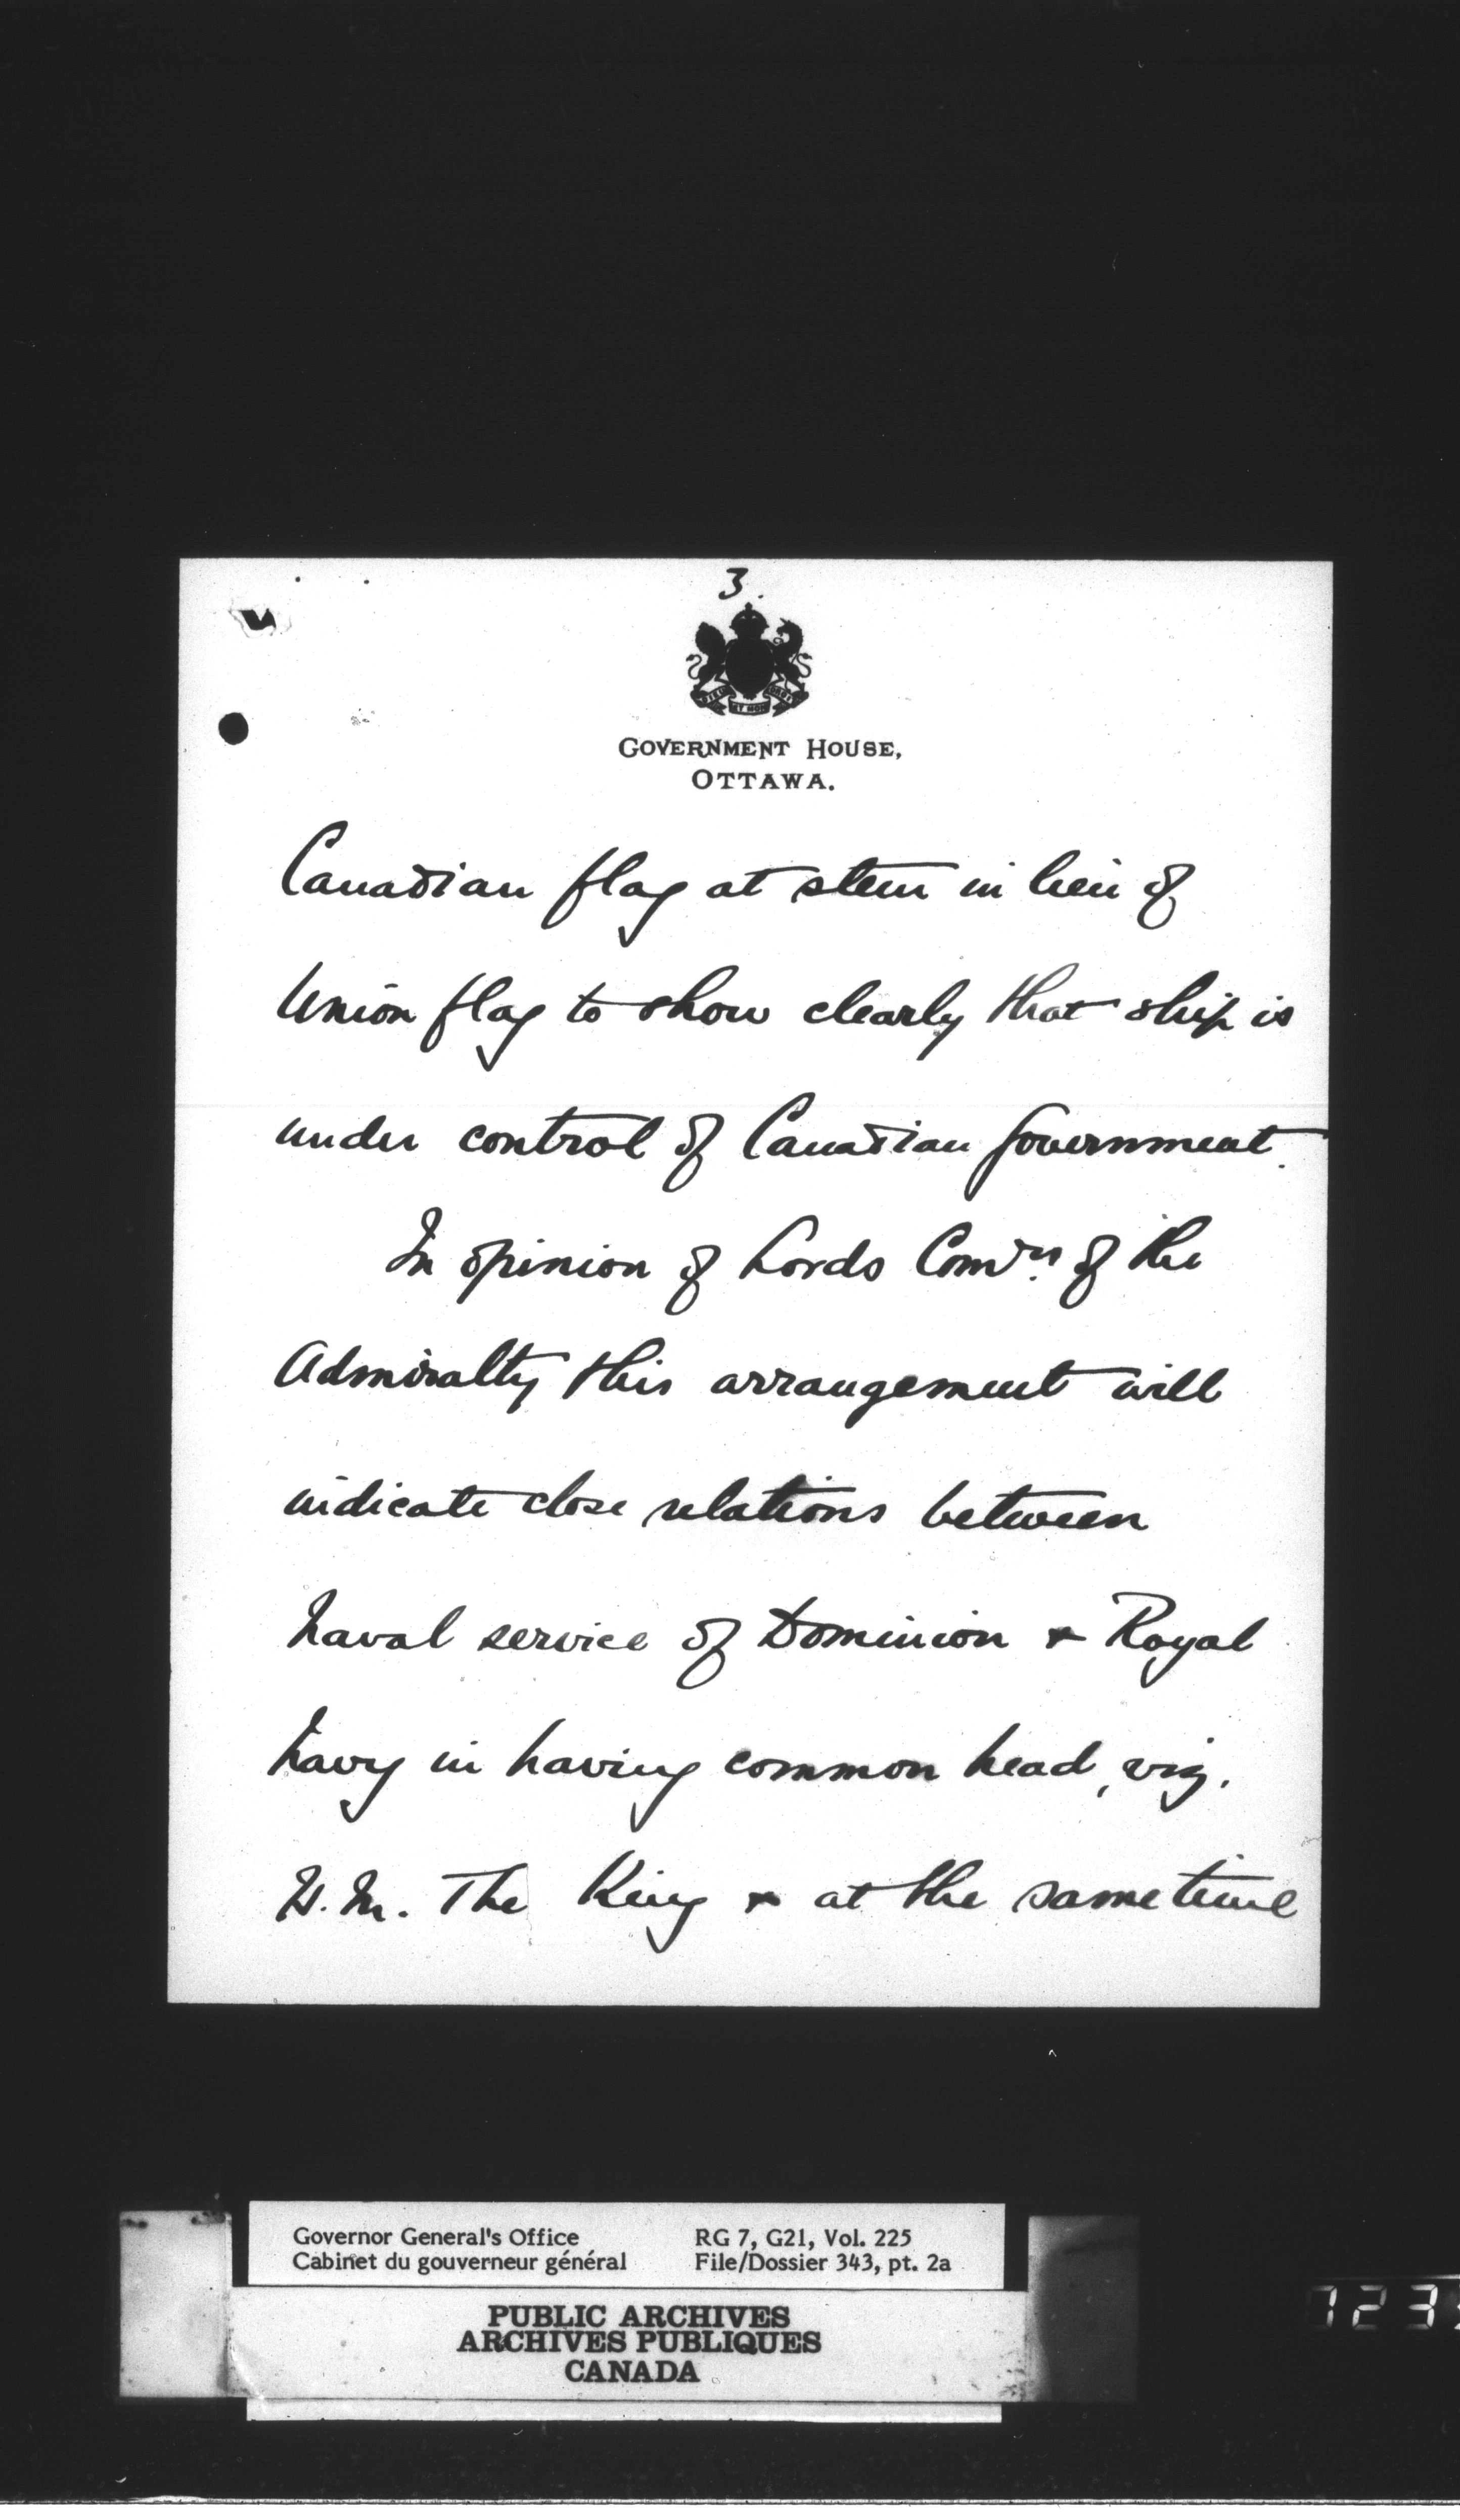 3.
DIEU ET MON DROIT
GOVERNMENT HOUSE,
OTTAWA.
Canadian flag at stem in lieu of
Union flag to show clearly that ship is
under control of Canadian Government.
In opinion of Lords Comrs. of the
Admiralty this arrangement will
indicate close relations between
Naval service of Dominion & Royal
Navy in having common head, viz.
H.M. The King & at the same time
Governor General's Office RG 7, G21, Vol. 225
Cabinet du gouverneur général File/Dossier 343, pt. 2a
PUBLIC ARCHIVES
ARCHIVES PUBLIQUES
CANADA
723